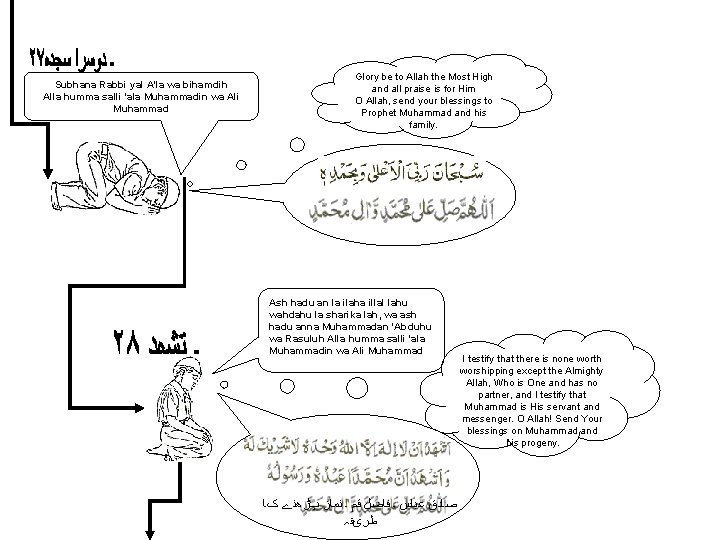 ۲۷۔ دوسرا سجدہ
Subhana Rabbi yal A'la wa bihamdih
Alla humma salli 'ala Muhammadin wa Ali
Muhammad
Glory be to Allah the Most High
and all praise is for Him
O Allah, send your blessings to
Prophet Muhammad and his
family.
سُبْحَانَ رَبِّيَ الْاَعْلٰى وَبِحَمْدِهٖ
اَللّٰهُمَّ صَلِّ عَلٰى مُحَمَّدٍ وَّاٰلِ مُحَمَّدٍ
۲۸ ۔ تشہد
Ash hadu an la ilaha illal lahu
wahdahu la sharika lah, wa ash
hadu anna Muhammadan 'Abduhu
wa Rasuluh Alla humma salli 'ala
Muhammadin wa Ali Muhammad
I testify that there is none worth
worshipping except the Almighty
Allah, Who is One and has no
partner, and I testify that
Muhammad is His servant and
messenger. O Allah! Send Your
blessings on Muhammad and
his progeny.
اَشْهَدُ اَنْ لَا اِلٰهَ اِلَّا اللهُ وَحْدَهٗ لَا شَرِيْكَ لَهٗ
وَاَشْهَدُ اَنَّ مُحَمَّدًا عَبْدُهٗ وَرَسُوْلُهٗ
نماز پڑھنے کا
طریقہ